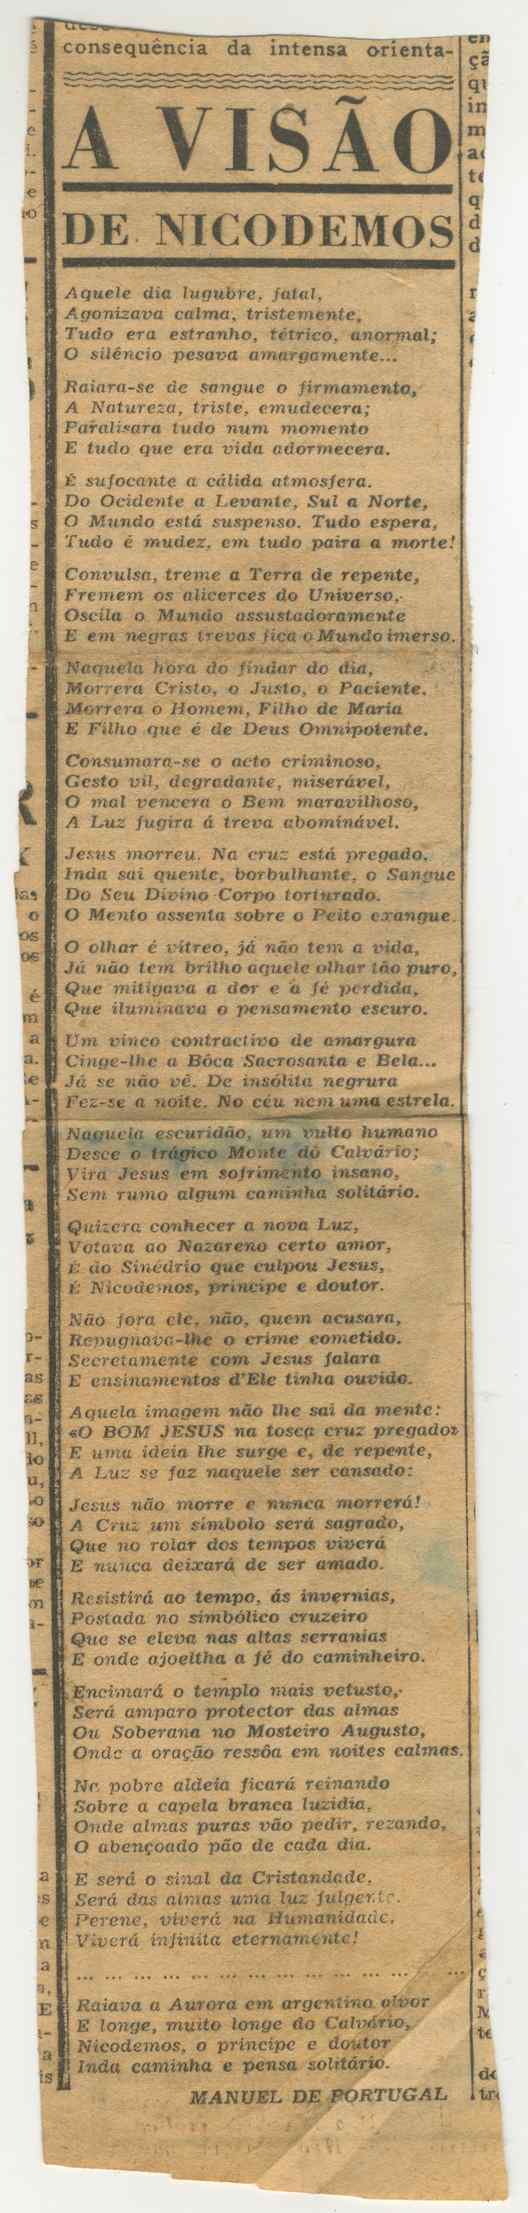 consequência da intensa orienta-
A VISÃO
DE NICODEMOS
Aquele dia lugubre, fatal,
Agonizava calma, tristemente,
Tudo era estranho, tétrico, anormal;
O silêncio pesava amargamente...
Raiara-se de sangue o firmamento,
A Natureza, triste, emudecera;
Paralisara tudo num momento
E tudo que era vida adormecera.
É sufocante a cálida atmosfera.
Do Ocidente a Levante, Sul a Norte,
O Mundo está suspenso. Tudo espera,
Tudo é mudez, em tudo paira a morte!
Convulsa, treme a Terra de repente,
Fremem os alicerces do Universo,
Oscila o Mundo assustadoramente
E em negras trevas fica o Mundo imerso.
Naquela hora do findar do dia,
Morrera Cristo, o Justo, o Paciente.
Morrera o Homem, Filho de Maria
E Filho que é de Deus Omnipotente.
Consumara-se o acto criminoso,
Gesto vil, degradante, miserável,
O mal vencera o Bem maravilhoso,
A Luz fugira á treva abominável.
Jesus morreu. Na cruz está pregado.
Inda sai quente, borbulhante, o Sangue
Do Seu Divino Corpo torturado.
O Mento assenta sobre o Peito exangue.
O olhar é vítreo, já não tem a vida,
Já não tem brilho aquele olhar tão puro,
Que mitigava a dor e a fé perdida,
Que iluminava o pensamento escuro.
Um vinco contractivo de amargura
Cinge-lhe a Bôca Sacrosanta e Bela...
Já se não vê. De insólita negrura
Fez-se a noite. No céu nem uma estrela.
Naquela escuridão, um vulto humano
Desce o trágico Monte do Calvário;
Vira Jesus em sofrimento insano,
Sem rumo algum caminha solitário.
Quizera conhecer a nova Luz,
Votava ao Nazareno certo amor,
É do Sinédrio que culpou Jesus,
É Nicodemos, príncipe e doutor.
Não fora ele, não, quem acusara,
Repugnava-lhe o crime cometido.
Secretamente com Jesus falara
E ensinamentos d'Ele tinha ouvido.
Aquela imagem não lhe sai da mente:
«O BOM JESUS na tosca cruz pregado»
E uma ideia lhe surge e, de repente,
A Luz se faz naquele ser cansado:
Jesus não morre e nunca morrerá!
A Cruz um símbolo será sagrado,
Que no rolar dos tempos viverá
E nunca deixará de ser amado.
Resistirá ao tempo, ás invernias,
Postada no simbólico cruzeiro
Que se eleva nas altas serranias
E onde ajoeltha a fé do caminheiro.
Encimará o templo mais vetusto,
Será amparo protector das almas
Ou Soberana no Mosteiro Augusto,
Onde a oração ressôa em noites calmas.
Na pobre aldeia ficará reinando
Sobre a capela branca luzidia,
Onde almas puras vão pedir, rezando,
O abençoado pão de cada dia.
E será o sinal da Cristandade,
Será das almas uma luz fulgente.
Perene, viverá na Humanidade,
Viverá infinita eternamente!
... ... ... ... ... ... ... ... ... ... ... ... ... ...
Raiava a Aurora em argentino alvor
E longe, muito longe do Calvário,
Nicodemos, o príncipe e doutor
Inda caminha e pensa solitário.
MANUEL DE PORTUGAL